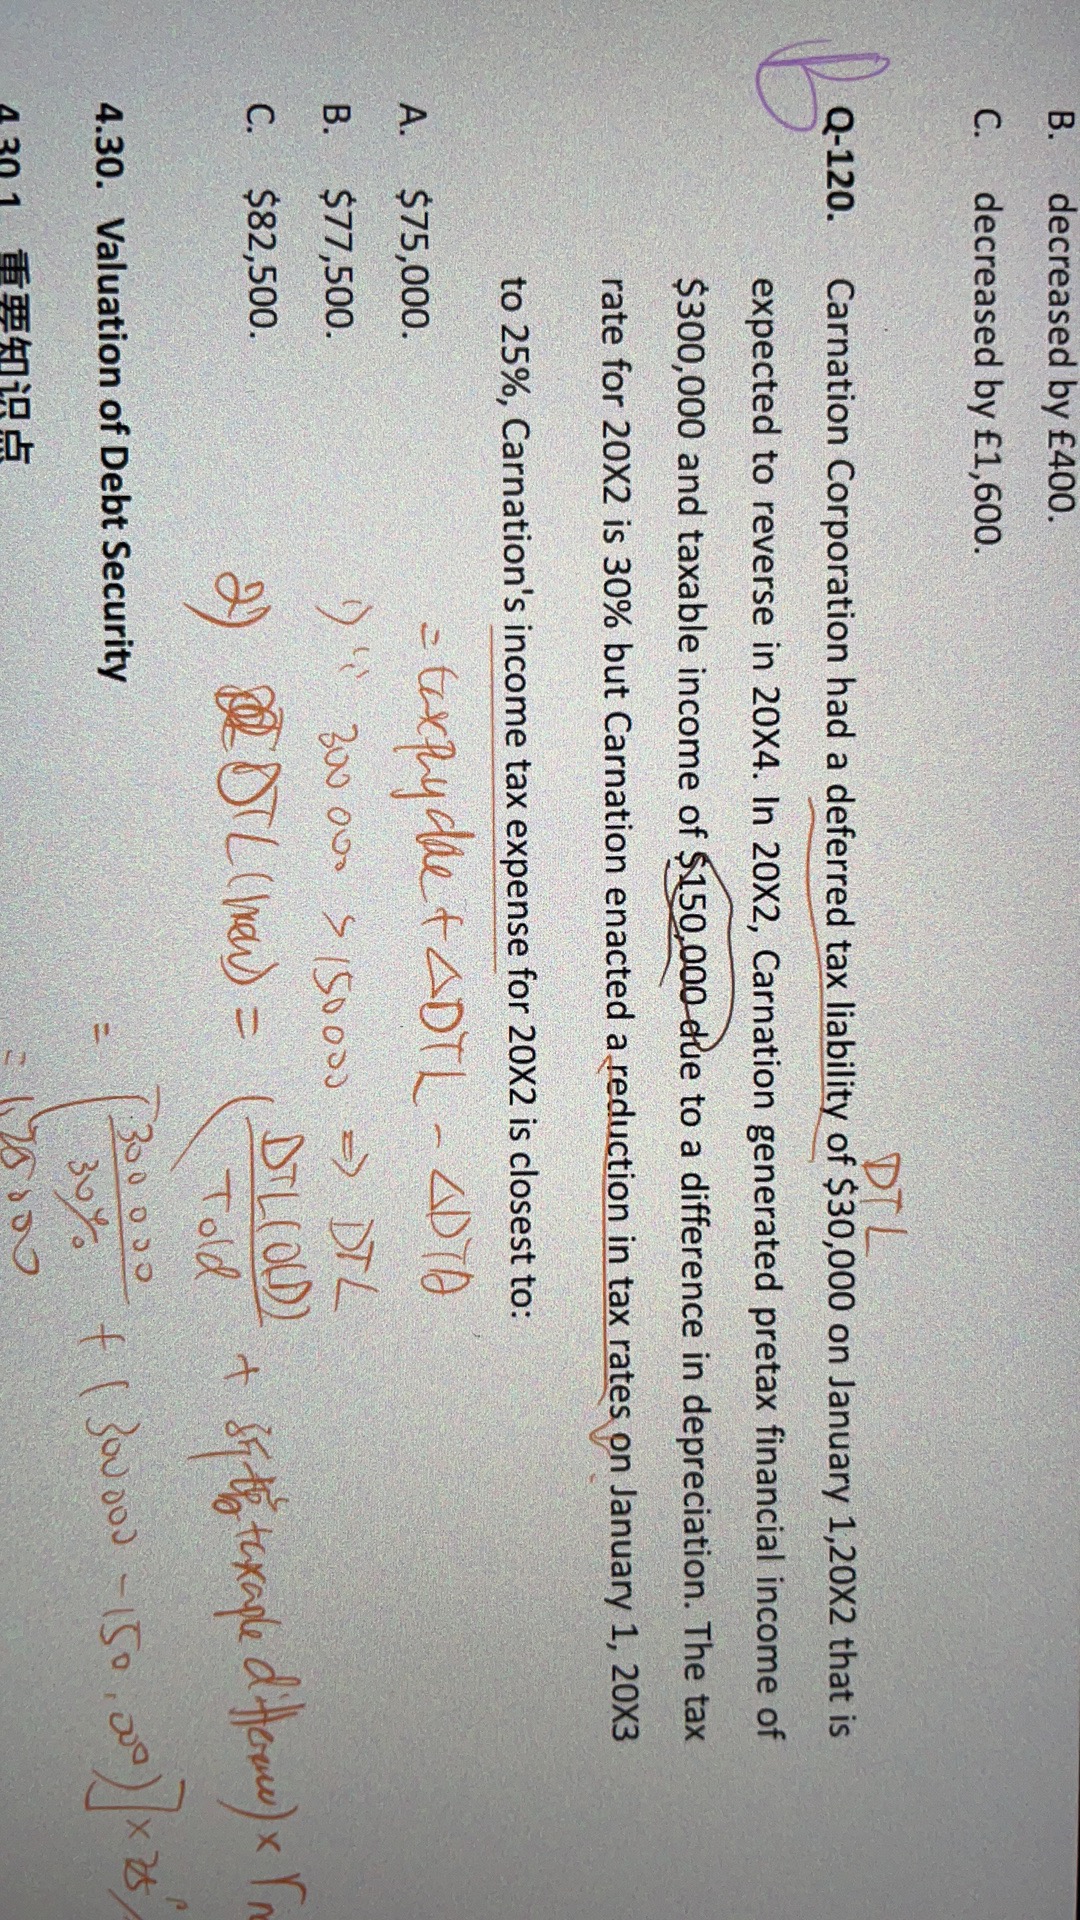 B. decreased by £400.
C. decreased by £1,600.
Q-120. Carnation Corporation had a deferred tax liability of $30,000 on January 1,20X2 that is
expected to reverse in 20X4. In 20X2, Carnation generated pretax financial income of
$300,000 and taxable income of $150,000 due to a difference in depreciation. The tax
rate for 20X2 is 30% but Carnation enacted a reduction in tax rates on January 1, 20X3
to 25%, Carnation's income tax expense for 20X2 is closest to:
A. $75,000.
B. $77,500.
C. $82,500.
DTL
+ ΔDTL - ΔDTA
1) ∵ 300 000 > 150 000 ⇒ DTL
2) DTL (new) = ( DTL(OLD) / T old + taxable difference) ×
= [ 300 000 / 30% + ( 300 000 - 150,000)] × 25%
4.30. Valuation of Debt Security
4.30.1 重要知识点